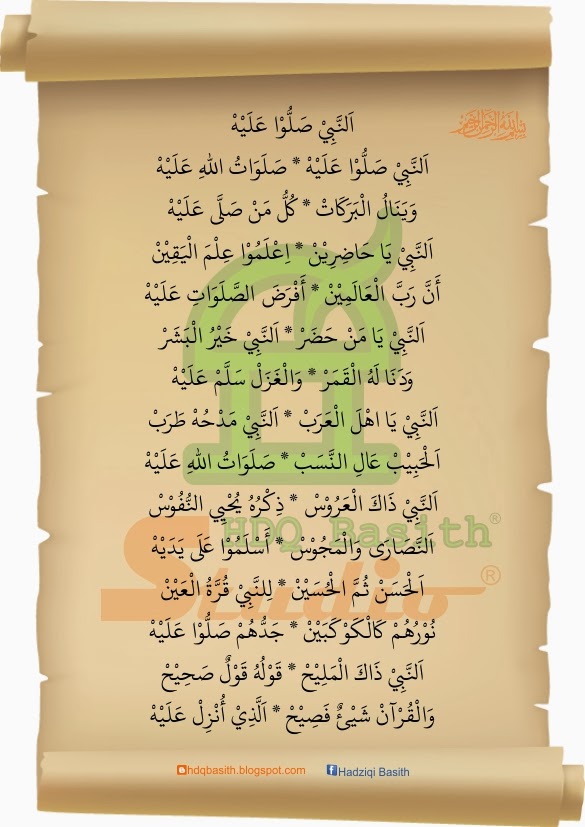 اَلنَّبِيْ صَلُّوْا عَلَيْهْ
اَلنَّبِيْ صَلُّوْا عَلَيْهْ * صَلَوَاتُ اللهِ عَلَيْهْ
وَيَنَالُ الْبَرَكَاتْ * كُلُّ مَنْ صَلَّى عَلَيْهْ
اَلنَّبِيْ يَا حَاضِرِيْنْ * اِعْلَمُوْا عِلْمَ الْيَقِيْنْ
أَنَّ رَبَّ الْعَالَمِيْنْ * أَفْرَضَ الصَّلَوَاتِ عَلَيْهْ
اَلنَّبِيْ يَا مَنْ حَضَرْ * اَلنَّبِيْ خَيْرُ الْبَشَرْ
وَدَنَا لَهُ الْقَمَرْ * وَالْغَزَلْ سَلَّمْ عَلَيْهْ
اَلنَّبِيْ يَا اهْلَ الْعَرَبْ * اَلنَّبِيْ مَدْحُهْ طَرَبْ
اَلْحَبِيْبْ عَالِ النَّسَبْ * صَلَوَاتُ اللهِ عَلَيْهْ
اَلنَّبِيْ ذَاكَ الْعَرُوْسْ * ذِكْرُهُ يُحْيِي النُّفُوْسْ
اَلنَّصَارَى وَالْمَجُوْسْ * أَسْلَمُوْا عَلَى يَدَيْهْ
HDQ Basith®
اَلْحَسَنْ ثُمَّ الْحُسَيْنْ * لِلنَّبِيْ قُرَّةُ الْعَيْنْ
Studio®
نُوْرُهُمْ كَالْكَوْكَبَيْنْ * جَدُّهُمْ صَلُّوْا عَلَيْهْ
اَلنَّبِيْ ذَاكَ الْمَلِيْحْ * قَوْلُهُ قَوْلٌ صَحِيْحْ
وَالْقُرْآنْ شَيْئٌ فَصِيْحْ * اَلَّذِيْ أُنْزِلْ عَلَيْهْ
hdqbasith.blogspot.com Hadziqi Basith